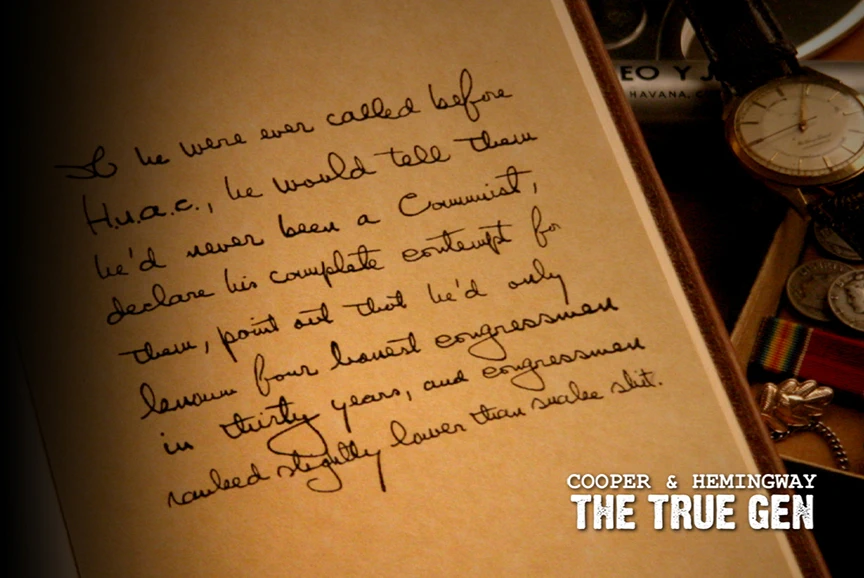 If he were ever called before
H.u.a.c., he would tell them
he'd never been a Communist,
declare his complete contempt for
them, point out that he'd only
known four honest congressmen
in thirty years, and congressmen
ranked slightly lower than snake shit.
EO Y J
HAVANA, C
COOPER & HEMINGWAY
THE TRUE GEN